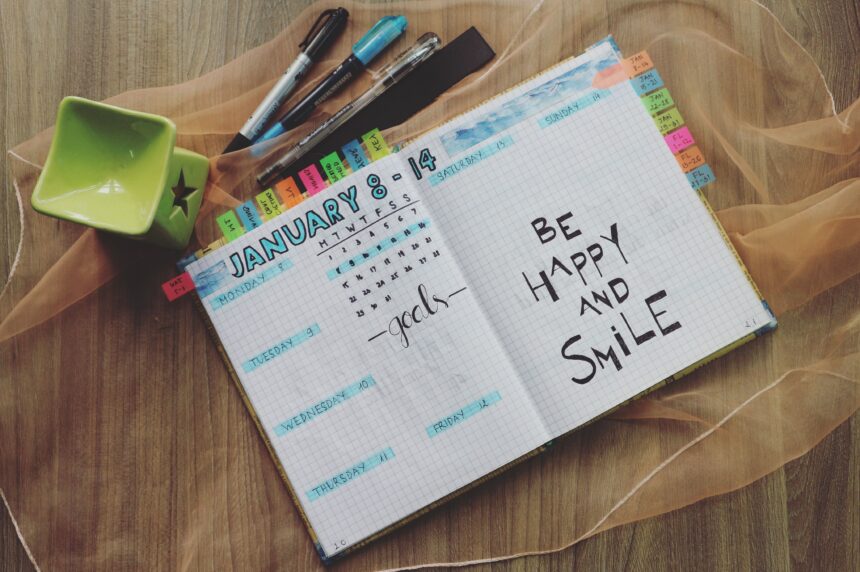 JANUARY 8 - 14
M T W T F S S
1 2 3 4 5 6 7
8 9 10 11 12 13 14
15 16 17 18 19 20 21
22 23 24 25 26 27 28
29 30 31
- goals -
MONDAY 8
TUESDAY 9
WEDNESDAY 10
THURSDAY 11
FRIDAY 12
20
SATURDAY 13
SUNDAY 14
BE
HAPPY
AND
SMiLE
21
KEY
JAN
8-14
JAN
15-21
JAN
22-28
JAN
FL
FL
FL